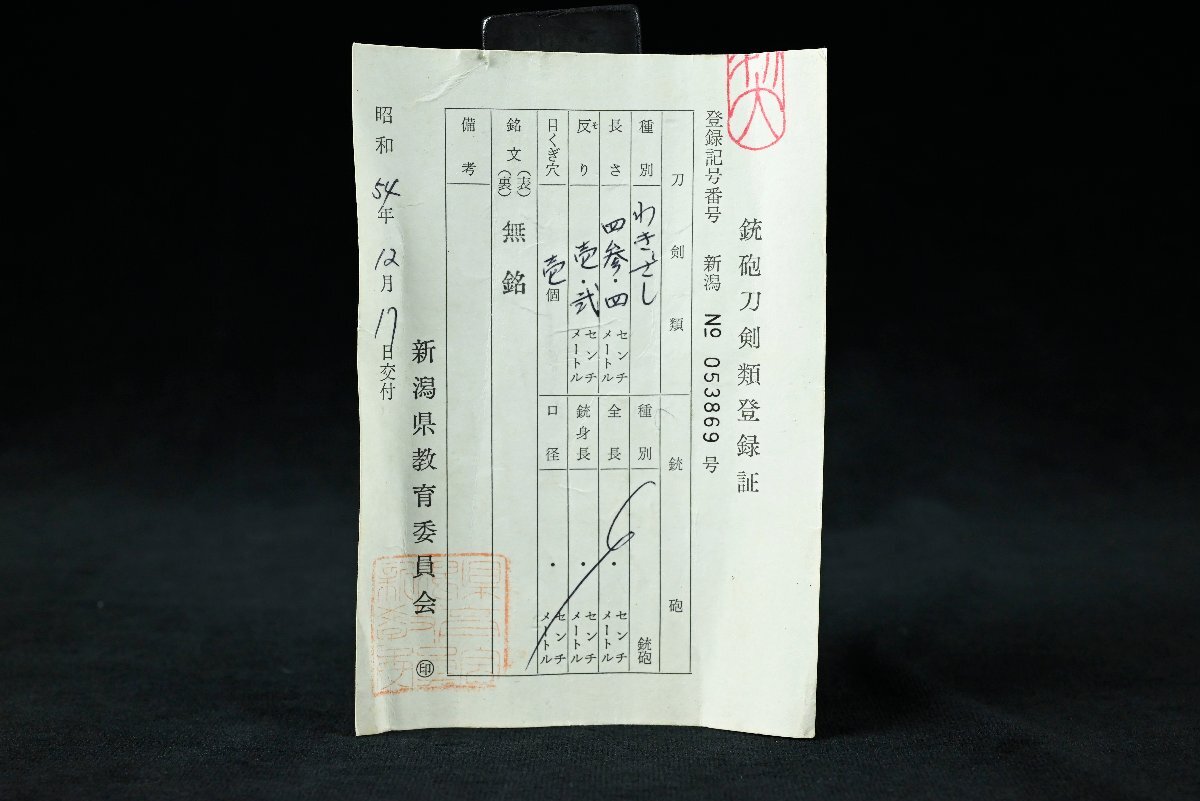 銃砲刀剣類登録証
登録記号番号 新潟 № 053869 号
刀剣類
種別 わきざし
長さ 四参・四 センチメートル
反り 壱・弐 センチメートル
目くぎ穴 壱個
銘文 (表) (裏) 無銘
銃砲
種別 銃砲
全長 ・ センチメートル
銃身長 ・ センチメートル
口径 ・ センチメートル
備考
昭和54年12月17日交付
新潟県教育委員会 ㊞